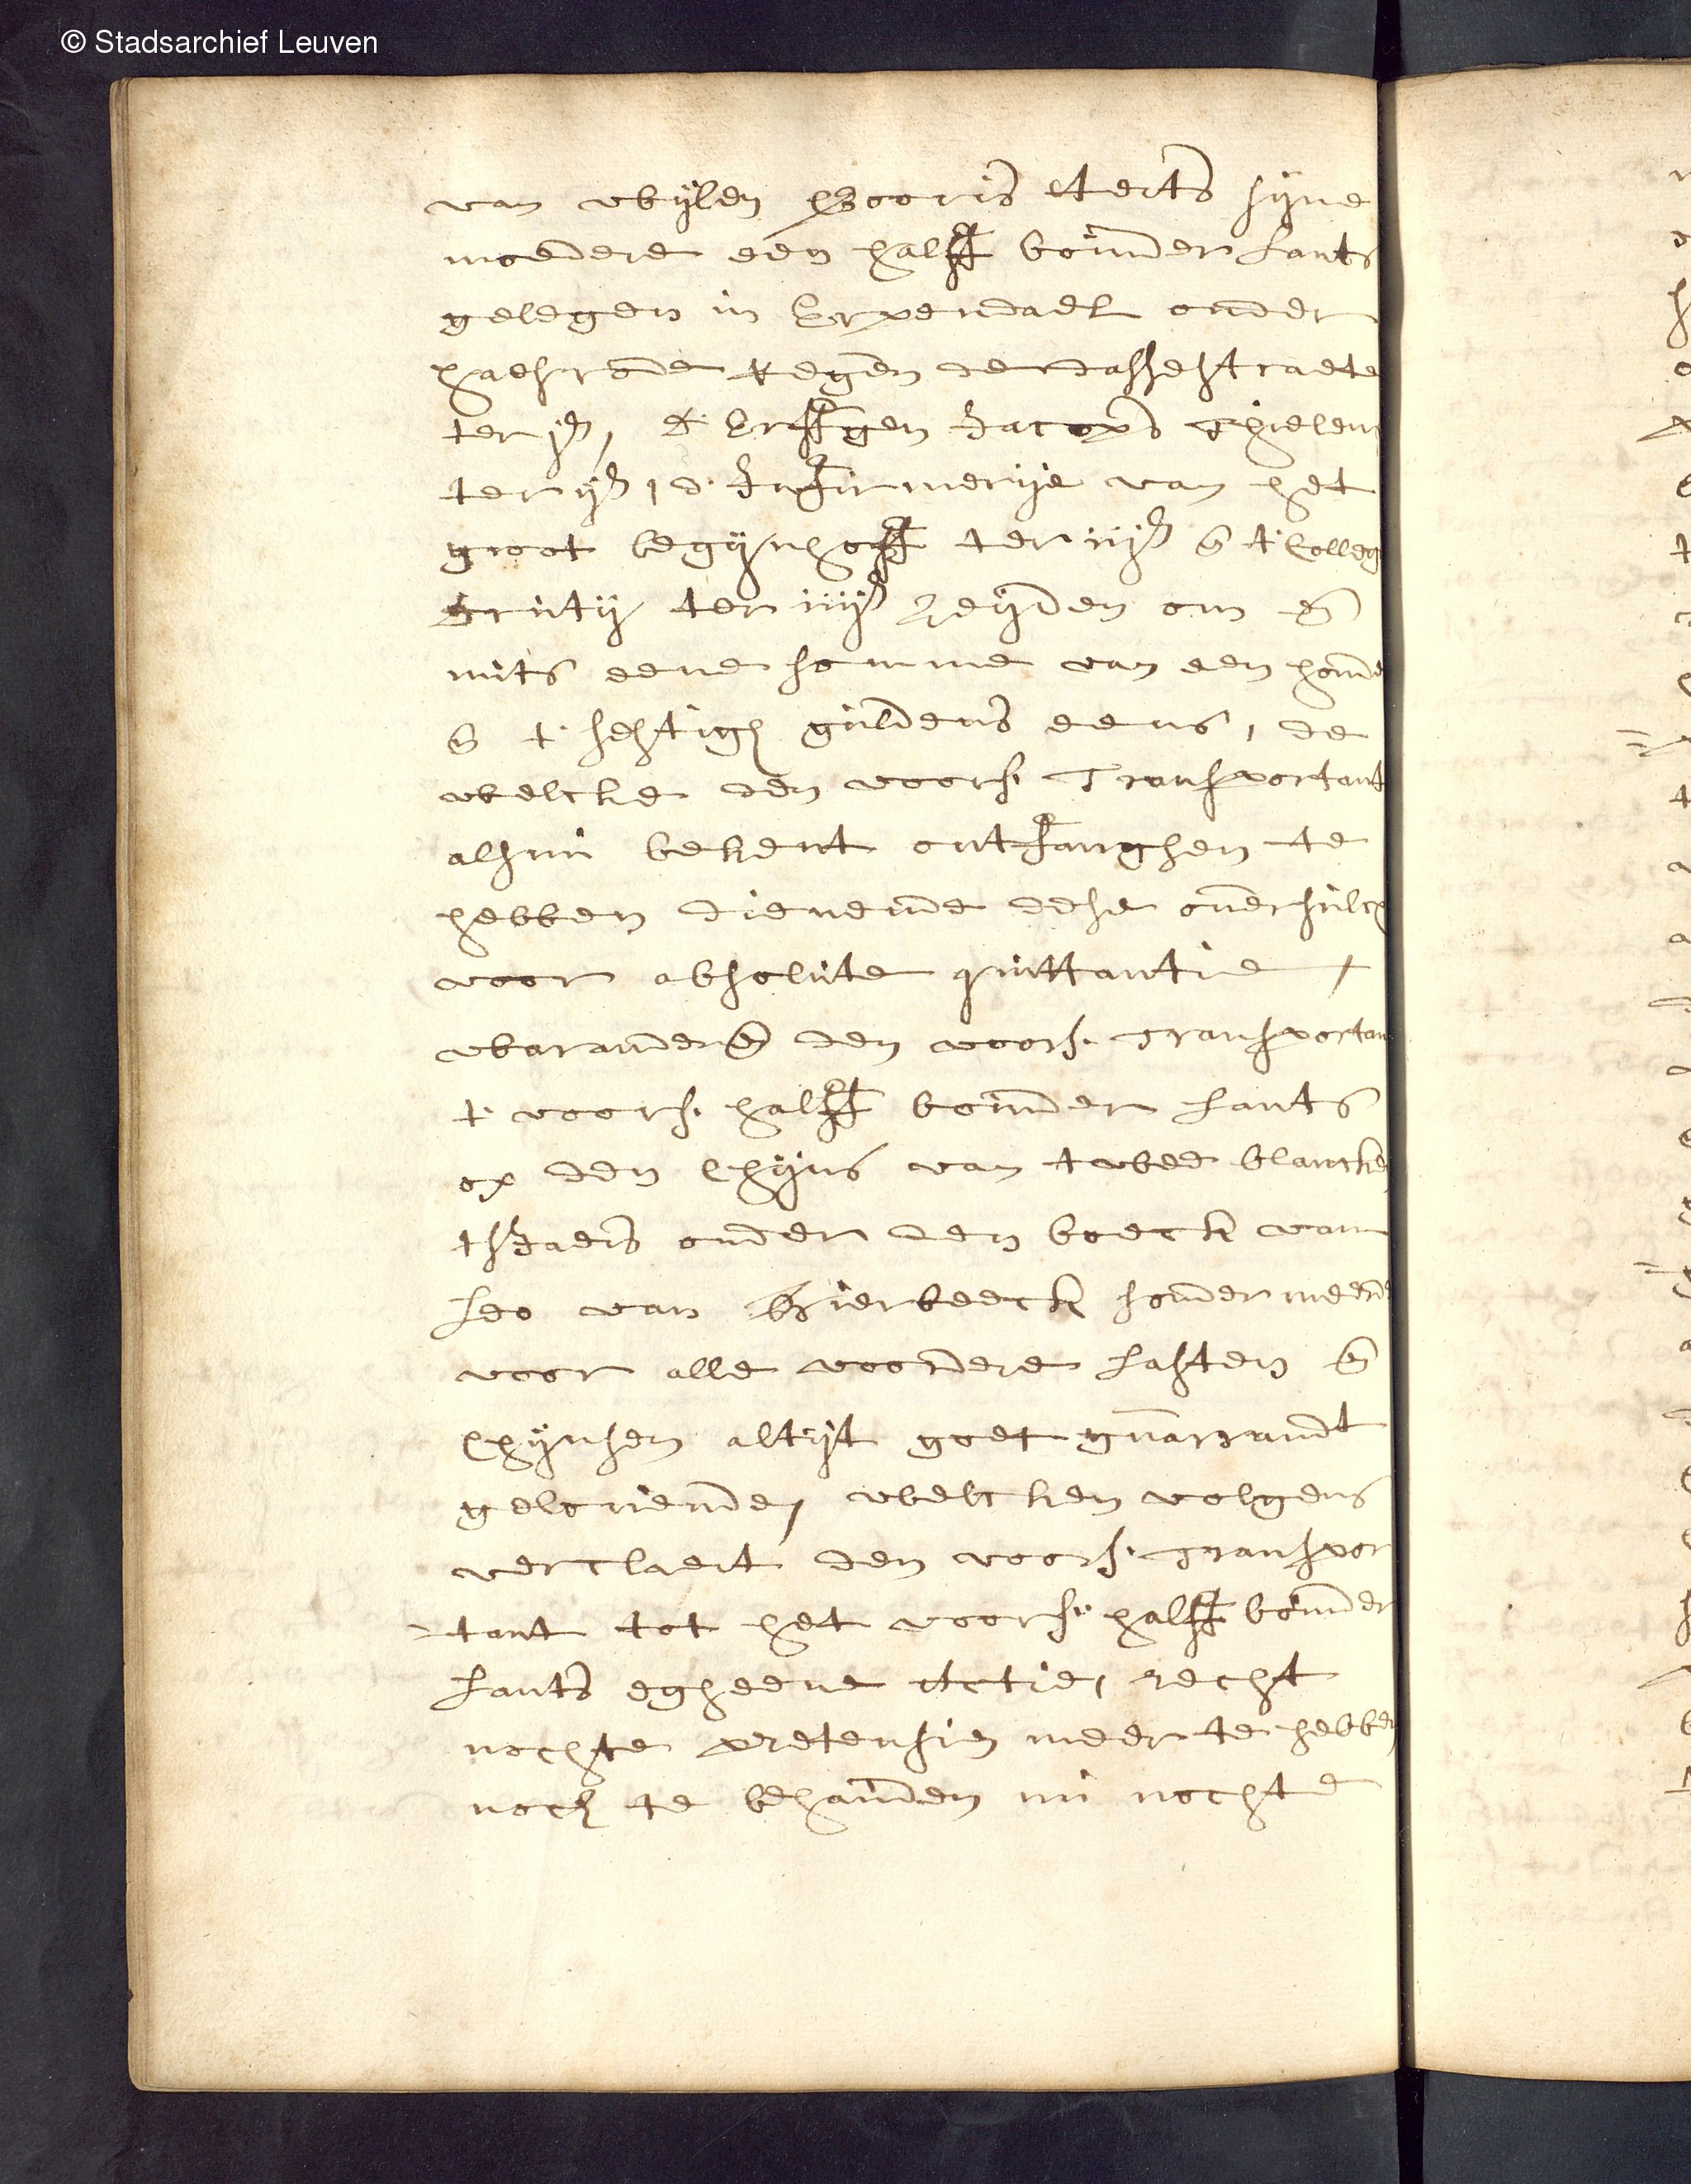 © Stadsarchief Leuven
van wylen Aerts syne
moedere een halff boinder lants
gelegen in Erpendael onder
haesrode tegen de dasschestraete
ter js, d' Erffgen Jacops Thielens
ter ijs, d' Infirmerije van het
groot begijnhoff ter iijs en t' Colleg
Druty ter iiijs zeijden om en
mits eene somme van een hond
en t' sestigh guldens eens, de
welcke den voors. Transportant
alsnu bekent ontfanghen te
hebben dienende dese ondersulcx
voor absolute quittantie,
waranderen den voors. Transportan
t' voors. halff boinder lants
op den Chijns van twee blancken
tsJaers onder den boeck van
Leo van Bierbeeck sonder meer
voor alle voordere lasten en
Chijnsen altijt goet guarrandt
gelovende, welcken volgens
verclaert den voors. Transpor
tant tot het voors. halff boinder
lants egheene Actie, recht
nochte pretensien meer te hebben
noch te behauden nu nochte